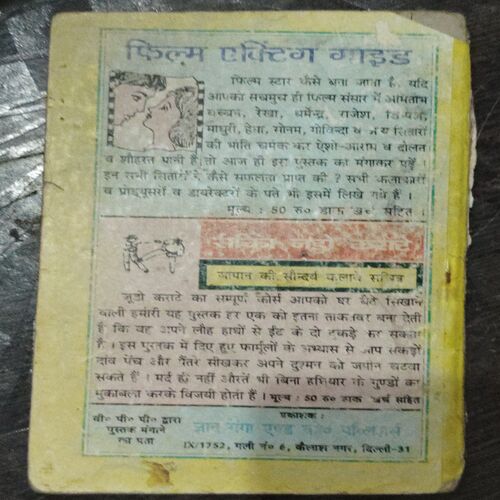 फिल्म एक्टिंग गाइड
फिल्म स्टार कैसे बना जाता है, यदि
आपको सचमुच ही फिल्म संसार में अमिताभ
बच्चन, रेखा, धर्मेन्द्र, राजेश,
माधुरी, हेमा, सोनम, गोविन्दा व अन्य सितारों
की भांति चमक कर ऐशो-आराम व दौलत
व शौहरत पानी है, तो आज ही इस पुस्तक को मंगाकर पढ़ें ।
इन सभी सितारों ने कैसे सफलता प्राप्त की ? सभी कलाकारों
व प्रोड्यूसरों व डायरेक्टरों के पते भी इसमें लिखे गये हैं ।
मूल्य : 50 रु० डाक खर्च सहित ।
जूडो कराटे
जापान की सौन्दर्य कला सचित्र
जूडो कराटे का सम्पूर्ण कोर्स आपको घर बैठे सिखाने
वाली हमारी यह पुस्तक हर एक को इतना ताकतवर बना देती
है कि वह अपने लौह हाथों से ईंट के दो टुकड़े कर सकता
है । इस पुस्तक में दिए हुए फार्मूलों के अभ्यास से आप सैकड़ों
दांव पेंच और पैंतरे सीखकर अपने दुश्मन को जमीन चटवा
सकते हैं । मर्द ही नहीं औरतें भी बिना हथियार के गुण्डों का
मुकाबला करके विजयी होती हैं । मूल्य : 50 रु० डाक खर्च सहित
वी० पी० पी० द्वारा
पुस्तक मंगाने
का पता
प्रकाशक :
ज्ञान गंगा एण्ड कं० पब्लिशर्स
IX/1752, गली नं० 6, कैलाश नगर, दिल्ली-31